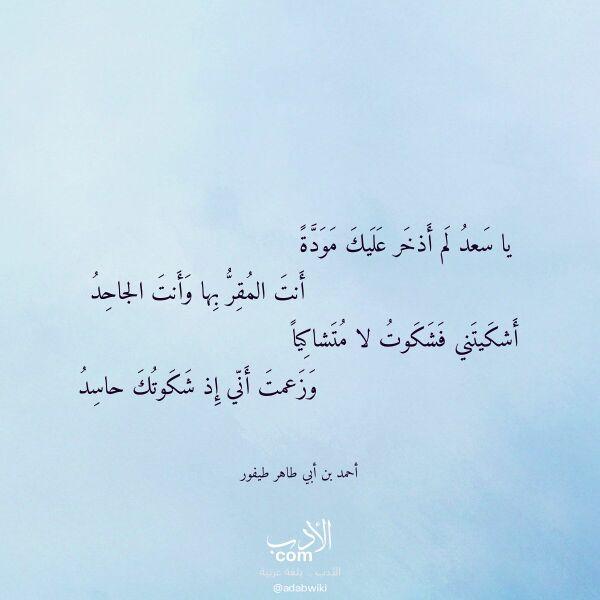 يا سَعدُ لَم أَذخَر عَلَيكَ مَوَدَّةً
أَنتَ المُقِرُّ بِها وَأَنتَ الجاحِدُ
أَشكَيتَني فَشَكَوتُ لا مُتَشاكِياً
وَزَعمتَ أَنّي إِذ شَكَوتُكَ حاسِدُ
أحمد بن أبي طاهر طيفور
الأدب
com
الأدب .. بلغة عربية
@adabwiki